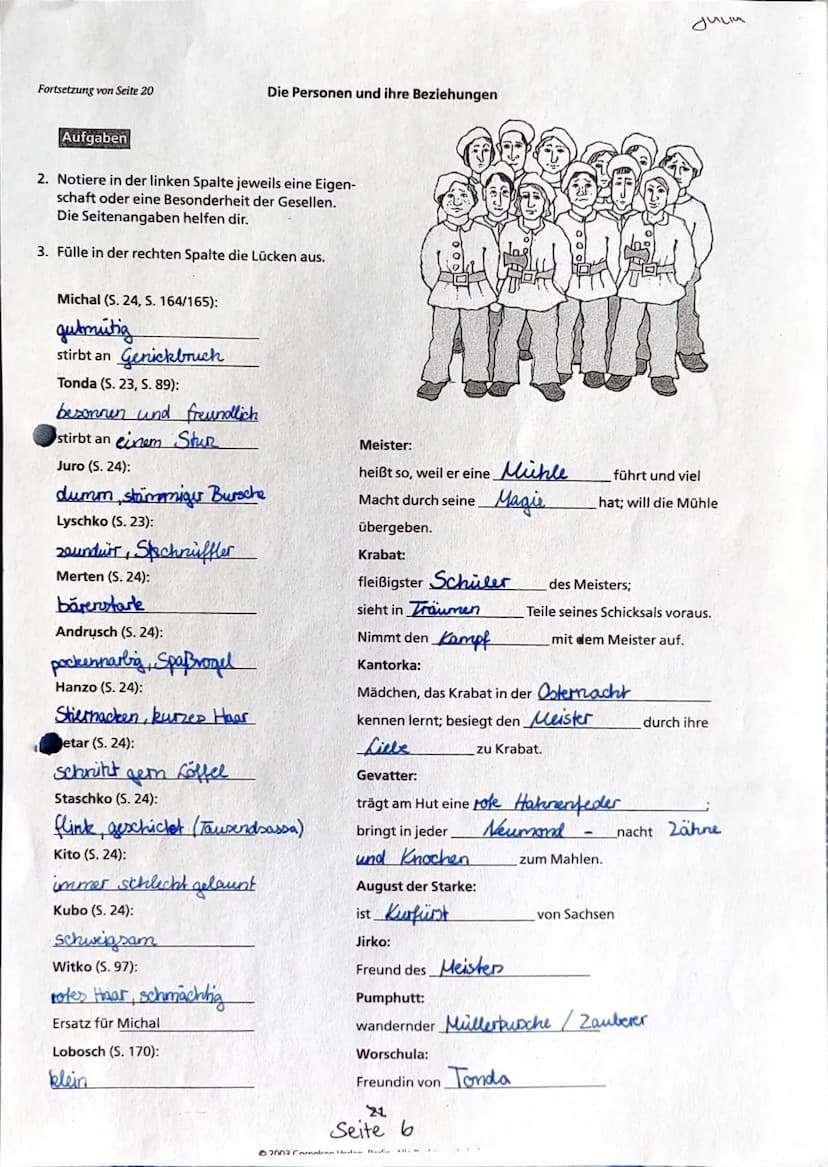 Julia
Fortsetzung von Seite 20
Die Personen und ihre Beziehungen
Aufgaben
2. Notiere in der linken Spalte jeweils eine Eigen-
schaft oder eine Besonderheit der Gesellen.
Die Seitenangaben helfen dir.
3. Fülle in der rechten Spalte die Lücken aus.
Michal (S. 24, S. 164/165):
gutmütig
stirbt an Genickbruch
Tonda (S. 23, S. 89):
besonnen und freundlich
stirbt an einem Stur
Juro (S. 24):
dumm, stämmiger Bursche
Lyschko (S. 23):
zaundürr, Stschnüffler
Merten (S. 24):
bärenstark
Andrusch (S. 24):
pockennarbig, Spaßvogel
Hanzo (S. 24):
Stiernacken, kurzes Haar
etar (S. 24):
schnitzt gern Löffel
Staschko (S. 24):
flink, geschickt (Tausendsassa)
Kito (S. 24):
immer schlecht gelaunt
Kubo (S. 24):
schweigsam
Witko (S. 97):
rotes Haar, schmächtig
Ersatz für Michal
Lobosch (S. 170):
klein
Meister:
heißt so, weil er eine Mühle führt und viel
Macht durch seine Magie hat; will die Mühle
übergeben.
Krabat:
fleißigster Schüler des Meisters;
sieht in Träumen Teile seines Schicksals voraus.
Nimmt den Kampf mit dem Meister auf.
Kantorka:
Mädchen, das Krabat in der Osternacht
kennen lernt; besiegt den Meister durch ihre
Liebe zu Krabat.
Gevatter:
trägt am Hut eine rote Hahnenfeder ;
bringt in jeder Neumond - nacht Zähne
und Knochen zum Mahlen.
August der Starke:
ist Kurfürst von Sachsen
Jirko:
Freund des Meisters
Pumphutt:
wandernder Müllerbusche / Zauberer
Worschula:
Freundin von Tonda
21
Seite 6